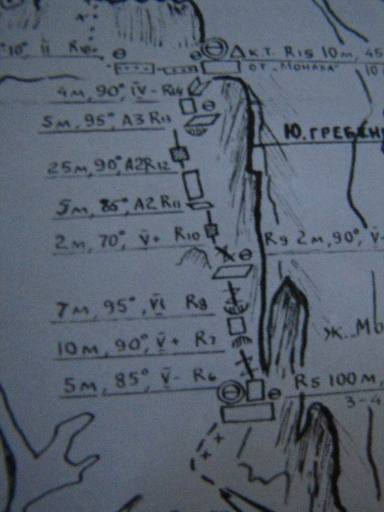 10°, II R
К.Т. R15 10м, 45
ОТ „МОНАХА"
4м, 90°, IV- R14
5м, 95°, A3 R13
Ю. ГРЕБЕН
25м, 90°, A2 R12
5м, 85°, A2 R11
2м, 70°, V+ R10
R9 2м, 90°, V-
7м, 95°, VI R8
10м, 90°, V+ R7
Ж.
5м, 85°, V- R6
R5 100м,
3-4